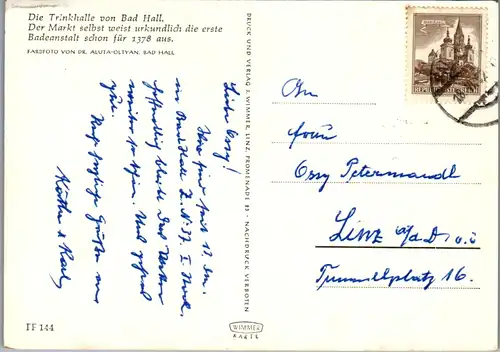 Die Trinkhalle von Bad Hall.
Der Markt selbst weist urkundlich die erste
Badeanstalt schon für 1378 aus.
FARBFOTO VON DR. ALUTA-OLTYAN, BAD HALL
Liebe Ossy!
Wir sind seit 12. ds.
in Bad Hall Z. N. 37. I. Stock.
Hoffentlich bleibt das Wetter
weiter so schön. Uns gefällt
gut.
Recht herzliche Grüße von
Käthe u Karl
FF 144
DRUCK UND VERLAG J. WIMMER, LINZ, PROMENADE 23 - NACHDRUCK VERBOTEN
WIMMER
KARTE
REPUBLIK ÖSTERREICH
An
Frau
Ossy Petermandl
Linz a/d.D. o.ö
Tummelplatz 16.